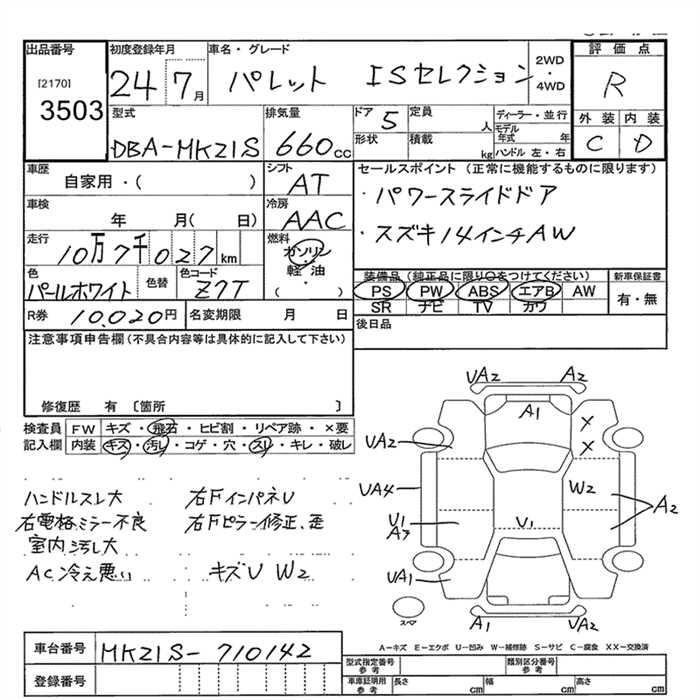 出品番号 初度登録年月 車名・グレード 2WD・4WD 評価点
[2170] 3503 24年 7月 パレット ISセレクション R
型式 排気量 ドア 5 定員 人 ディーラー・並行 外装 内装
DBA-MK21S 660cc 形状 積載 kg モデル年式 年 ハンドル 左・右 C D
車歴 シフト セールスポイント (正常に機能するものに限ります)
自家用・( ) AT ・パワースライドドア
車検 冷房
年 月( 日) AAC ・スズキ14インチAW
走行 燃料
10万7千027km ガソリン
色 色替 色コード 軽・油 装備品(純正品に限り○をつけてください) 新車保証書
パールホワイト Z7T ( ) PS PW ABS エアB AW 有・無
SR ナビ TV カワ
R券 10,020円 名変期限 月 日 後日品
注意事項申告欄(不具合内容等は具体的に記入して下さい)
修復歴 有 〔箇所 〕
検査員 FW キズ・飛石・ヒビ割・リペア跡・×要
記入欄 内装 キズ・汚レ・コゲ・穴・スレ・キレ・破レ
ハンドルスレ大 右FインパネU
右電格ミラー不良 右Fピラー修正、歪
室内汚レ大
AC冷え悪い キズU W2
UA2 A2
A1
X
X
UA2
UA4 W2
A2
U1 U1
A3
UA1
スペア A1 UA2
A-キズ E-エクボ U-凹み W-補修跡 S-サビ C-腐食 XX-交換済
車台番号 MK21S-710142
型式指定番号 参考 類別区分番号 参考
登録番号 車庫証明用 参考 長さ cm 幅 cm 高さ cm